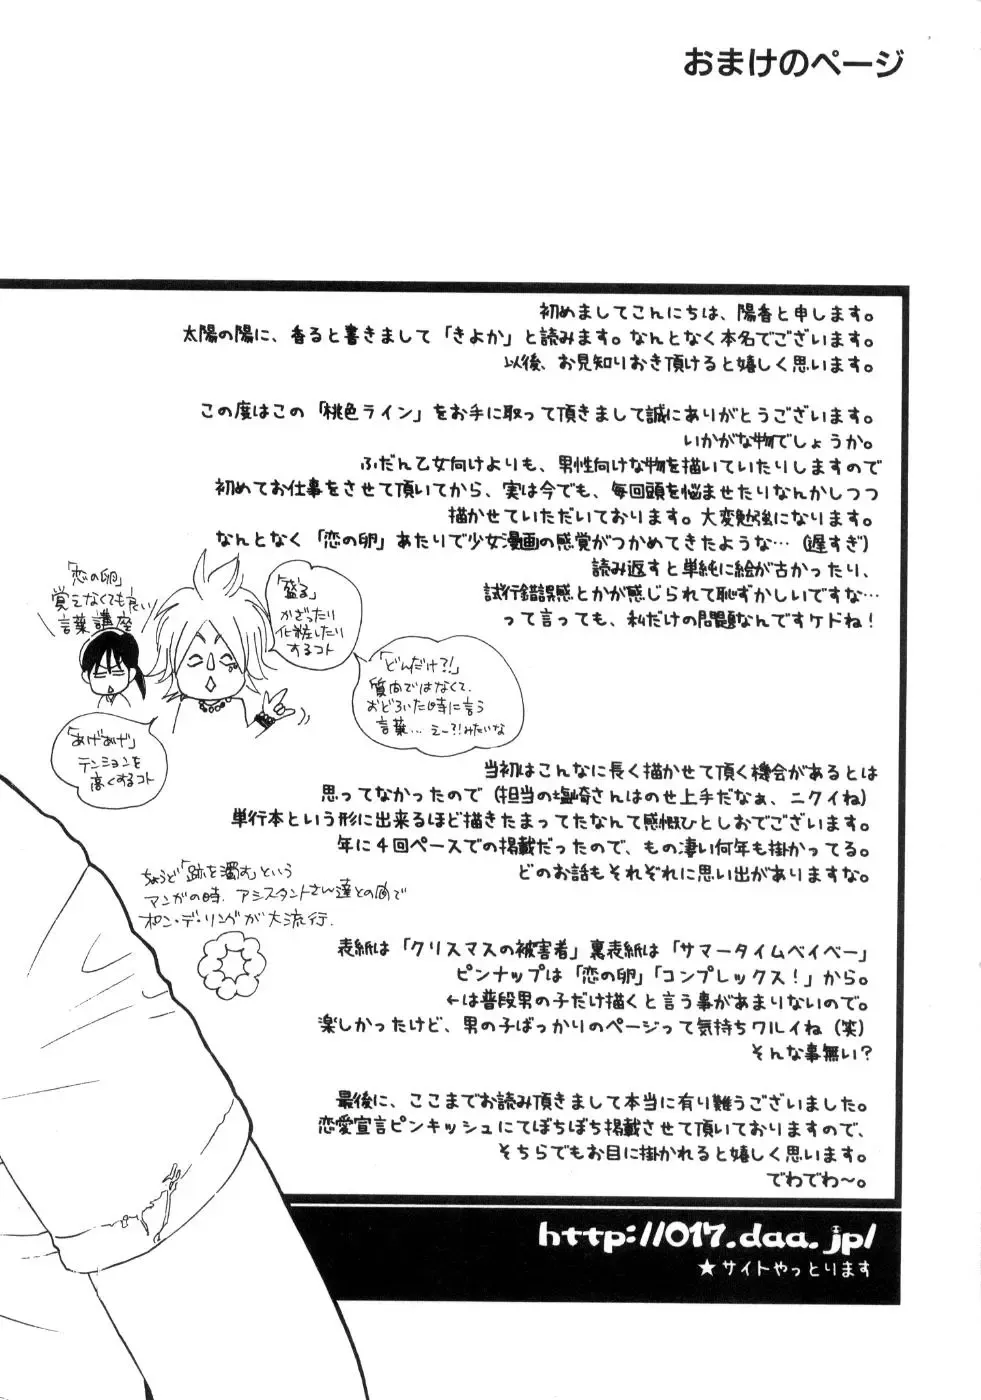 おまけのページ
初めましてこんにちは、陽香と申します。
太陽の陽に、香ると書きまして「きよか」と読みます。なんとなく本名でございます。
以後、お見知りおき頂けると嬉しく思います。
この度はこの「桃色ライン」をお手に取って頂きまして誠にありがとうございます。
いかがな物でしょうか。
ふだん乙女向けよりも、男性向けな物を描いていたりしますので
初めてお仕事をさせて頂いてから、実は今でも、毎回頭を悩ませたりなんかしつつ
描かせていただいております。大変勉強になります。
なんとなく「恋の卵」あたりで少女漫画の感覚がつかめてきたような…（遅すぎ）
読み返すと単純に絵が古かったり、
試行錯誤感とかが感じられて恥ずかしいですな…
って言っても、私だけの問題なんですケドね！
「恋の卵」
覚えなくても良い
言葉講座
「盛る」
かざったり
化粧したり
するコト
「どんだけ?!」
質問ではなくて、
おどろいた時に言う
言葉… えー?!みたいな
「あげあげ」
テンションを
高くするコト
当初はこんなに長く描かせて頂く機会があるとは
思ってなかったので（担当の塩崎さんはのせ上手だなぁ、ニクイね）
単行本という形に出来るほど描きたまってたなんて感慨ひとしおでございます。
年に４回ペースでの掲載だったので、もの凄い何年も掛かってる。
どのお話もそれぞれに思い出がありますな。
ちょうど「跡を濁す」という
マンガの時、アシスタントさん達との間で
ポン・デ・リングが大流行.
表紙は「クリスマスの被害者」裏表紙は「サマータイムベイベー」
ピンナップは「恋の卵」「コンプレックス！」から。
←は普段男の子だけ描くと言う事があまりないので。
楽しかったけど、男の子ばっかりのページって気持ちワルイね（笑）
そんな事無い？
最後に、ここまでお読み頂きまして本当に有り難うございました。
恋愛宣言ピンキッシュにてぼちぼち掲載させて頂いておりますので、
そちらでもお目に掛かれると嬉しく思います。
でわでわ〜。
http://017.daa.jp/
★サイトやっとります